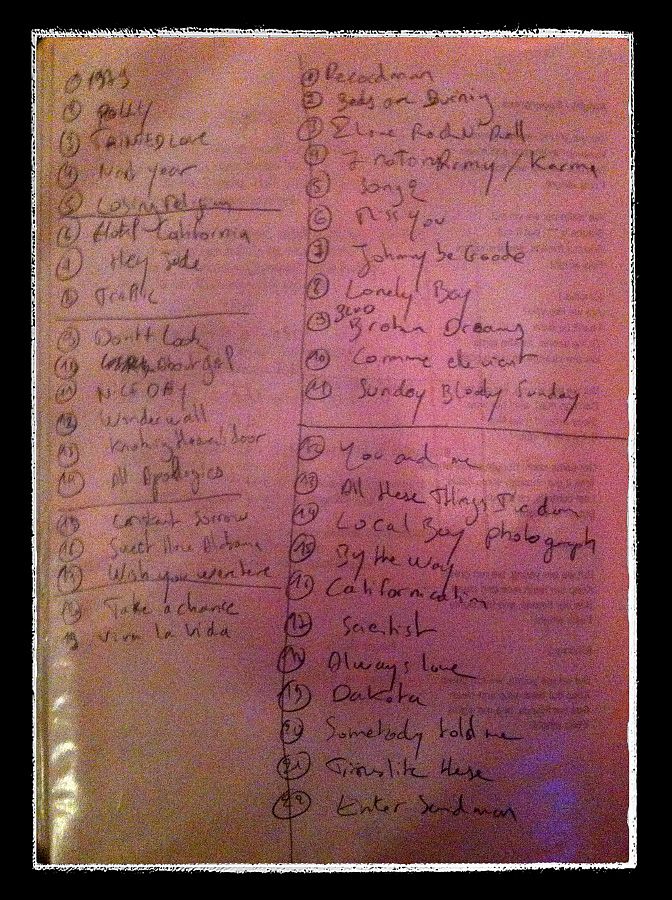 ① 1979
② Polly
③ TAINTED LOVE
④ New year
⑤ Losing Religion
⑥ Hotel California
⑦ Hey Jude
⑧ Traffic
⑨ Don't Look
⑩ About girl
⑪ NICE DAY
⑫ Wonderwall
⑬ Knoking Heaven door
⑭ All Apologies
⑮ Constant Sorrow
⑯ Sweet Home Alabama
⑰ Wish you were here
⑱ Take a chance
19 Viva la Vida
① Recordman
② Beds are Burning
③ I love Rock N' Roll
④ 7 nation Army / Karma
⑤ Song 2
⑥ Miss You
⑦ Johnny be Goode
⑧ Lonely Boy
⑨ BLVD Broken Dreams
⑩ Comme elle vient
⑪ Sunday Bloody Sunday
⑫ You and me
⑬ All these Things I've done
⑭ Local Boy photograph
⑮ By the way
Californication
Scientist
Always love
⑲ Dakota
⑳ Somebody told me
㉑ Times like these
㉒ Enter Sandman